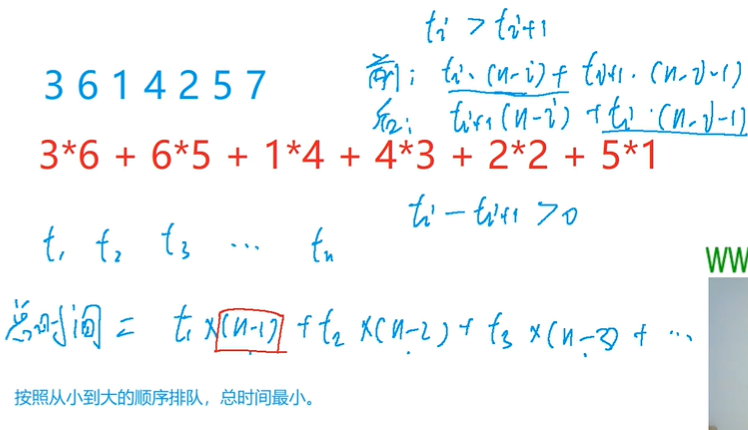 tᵢ > tᵢ₊₁
3 6 1 4 2 5 7
前: tᵢ·(n-i) + tᵢ₊₁·(n-i-1)
后: tᵢ₊₁(n-i) + tᵢ·(n-i-1)
3*6 + 6*5 + 1*4 + 4*3 + 2*2 + 5*1
tᵢ - tᵢ₊₁ > 0
t₁ t₂ t₃ ... tₙ
WW
总时间 = t₁×(n-1) + t₂×(n-2) + t₃×(n-3) + ...
按照从小到大的顺序排队，总时间最小。